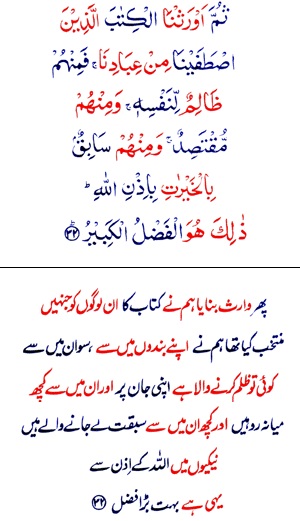 ثُمَّ اَوْرَثْنَا الْكِتٰبَ الَّذِيْنَ
اصْطَفَيْنَا مِنْ عِبَادِنَا ۚ فَمِنْهُمْ
ظَالِمٌ لِّنَفْسِهٖ ۚ وَمِنْهُمْ
مُّقْتَصِدٌ ۚ وَمِنْهُمْ سَابِقٌۢ
بِالْخَيْرٰتِ بِاِذْنِ اللّٰهِ ؕ
ذٰلِكَ هُوَ الْفَضْلُ الْكَبِيْرُ ﴿ؕ۳۲﴾
پھر وارث بنایا ہم نے کتاب کا ان لوگوں کو جنہیں
منتخب کیا تھا ہم نے اپنے بندوں میں سے ،سوان میں سے
کوئی تو ظلم کرنے والا ہے اپنی جان پر اور ان میں سے کچھ
میانہ رو ہیں اور کچھ ان میں سے سبقت لے جانے والے ہیں
نیکیوں میں اللہ کے اِذن سے
یہی ہے بہت بڑا فضل ﴿۳۲﴾